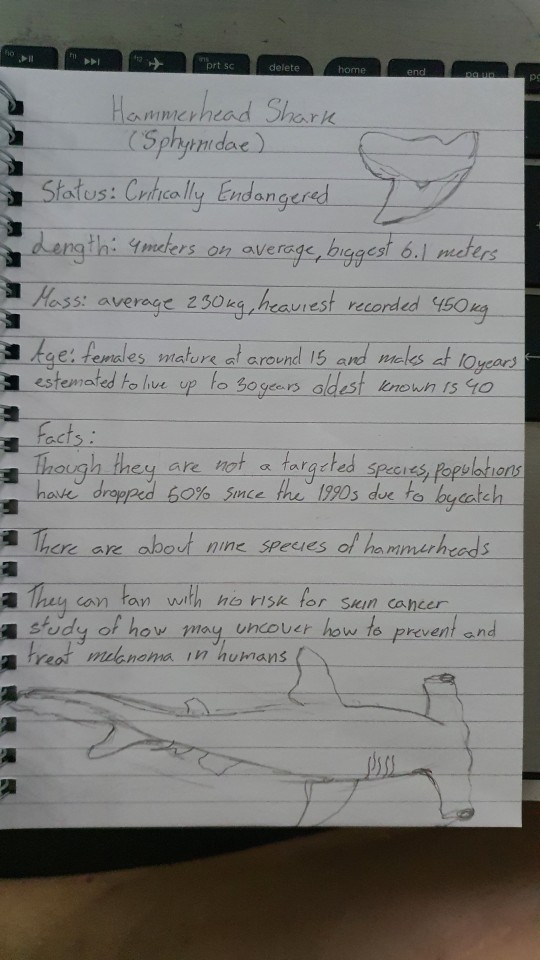 f10
f11
f12
ins
prt sc
delete
home
end
pg up
Hammerhead Shark
(Sphyrnidae)
Status: Critically Endangered
Length: 4meters on average, biggest 6.1 meters
Mass: average 230kg, heaviest recorded 450kg
Age: females mature at around 15 and males at 10years
estemated to live up to 30years oldest known is 40
Facts:
Though they are not a targeted species, populations
have dropped 50% since the 1990s due to bycatch
There are about nine species of hammerheads
They can tan with no risk for skin cancer
study of how may uncover how to prevent and
treat melanoma in humans